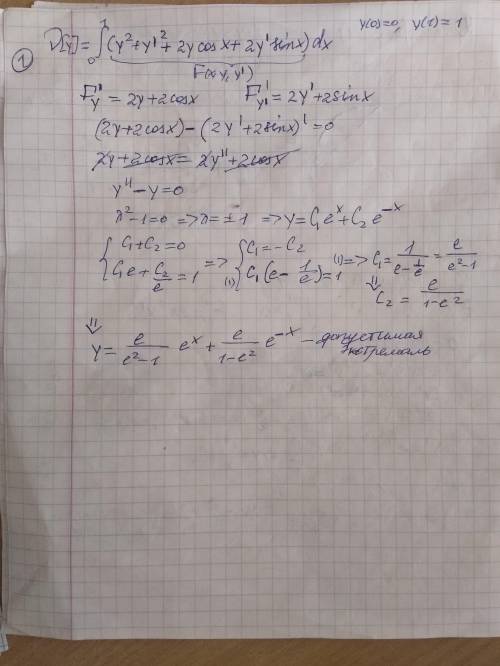 y(0)=0, y(1)=1
① D[y]=∫₀¹(y²+y'²+2y cosx+2y' sinx)dx
F(x,y,y')
F'y=2y+2cosx F'y'=2y'+2sinx
(2y+2cosx)-(2y'+2sinx)'=0
2y+2cosx=2y''+2cosx
y''-y=0
λ²-1=0 =>λ=±1 =>y=C₁eˣ+C₂e⁻ˣ
{C₁+C₂=0 => {C₁=-C₂ (1)=>C₁=1/(e-1/e)=e/(e²-1)
{C₁e+C₂/e=1 (1){C₁(e-1/e)=1 ⇓ C₂=e/(1-e²)
⇓
y=e/(e²-1) eˣ+e/(1-e²) e⁻ˣ - допустимая
экстремаль